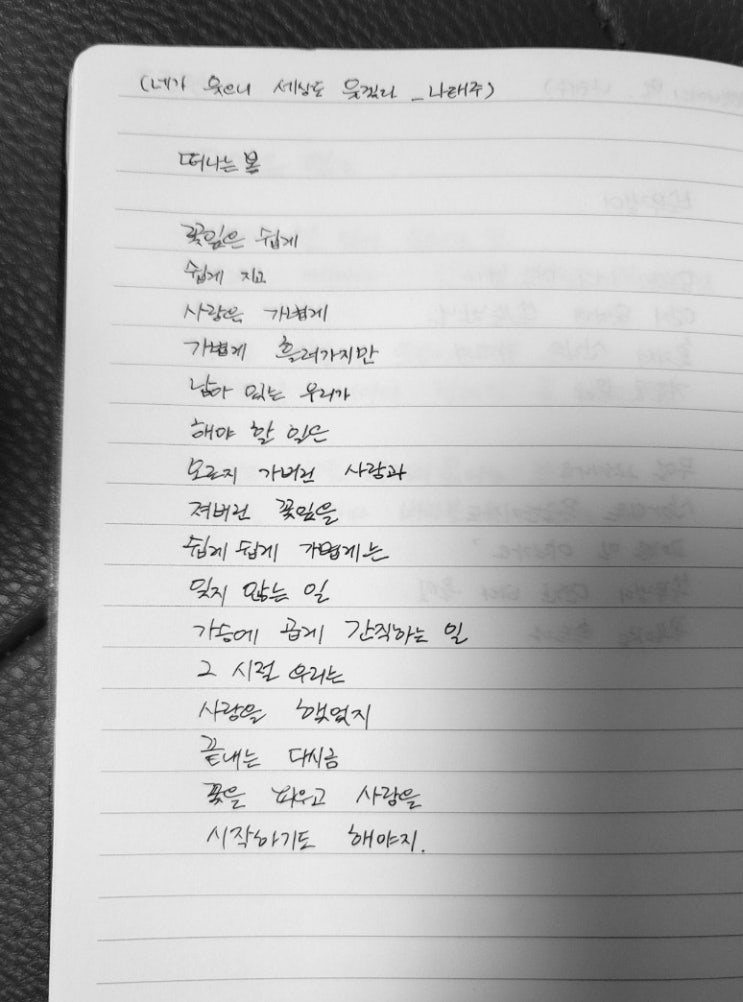 (네가 웃으니 세상도 웃겠다 _ 나태주)
떠나는 봄
꽃잎은 쉽게
쉽게 지고
사랑은 가볍게
가볍게 흘러가지만
남아 있는 우리가
해야 할 일은
오로지 가버린 사랑과
져버린 꽃잎을
쉽게 쉽게 가볍게는
잊지 않는 일
가슴에 곱게 간직하는 일
그 시절 우리는
사랑을 했었지
끝내는 다시금
꽃을 피우고 사랑을
시작하기도 해야지.